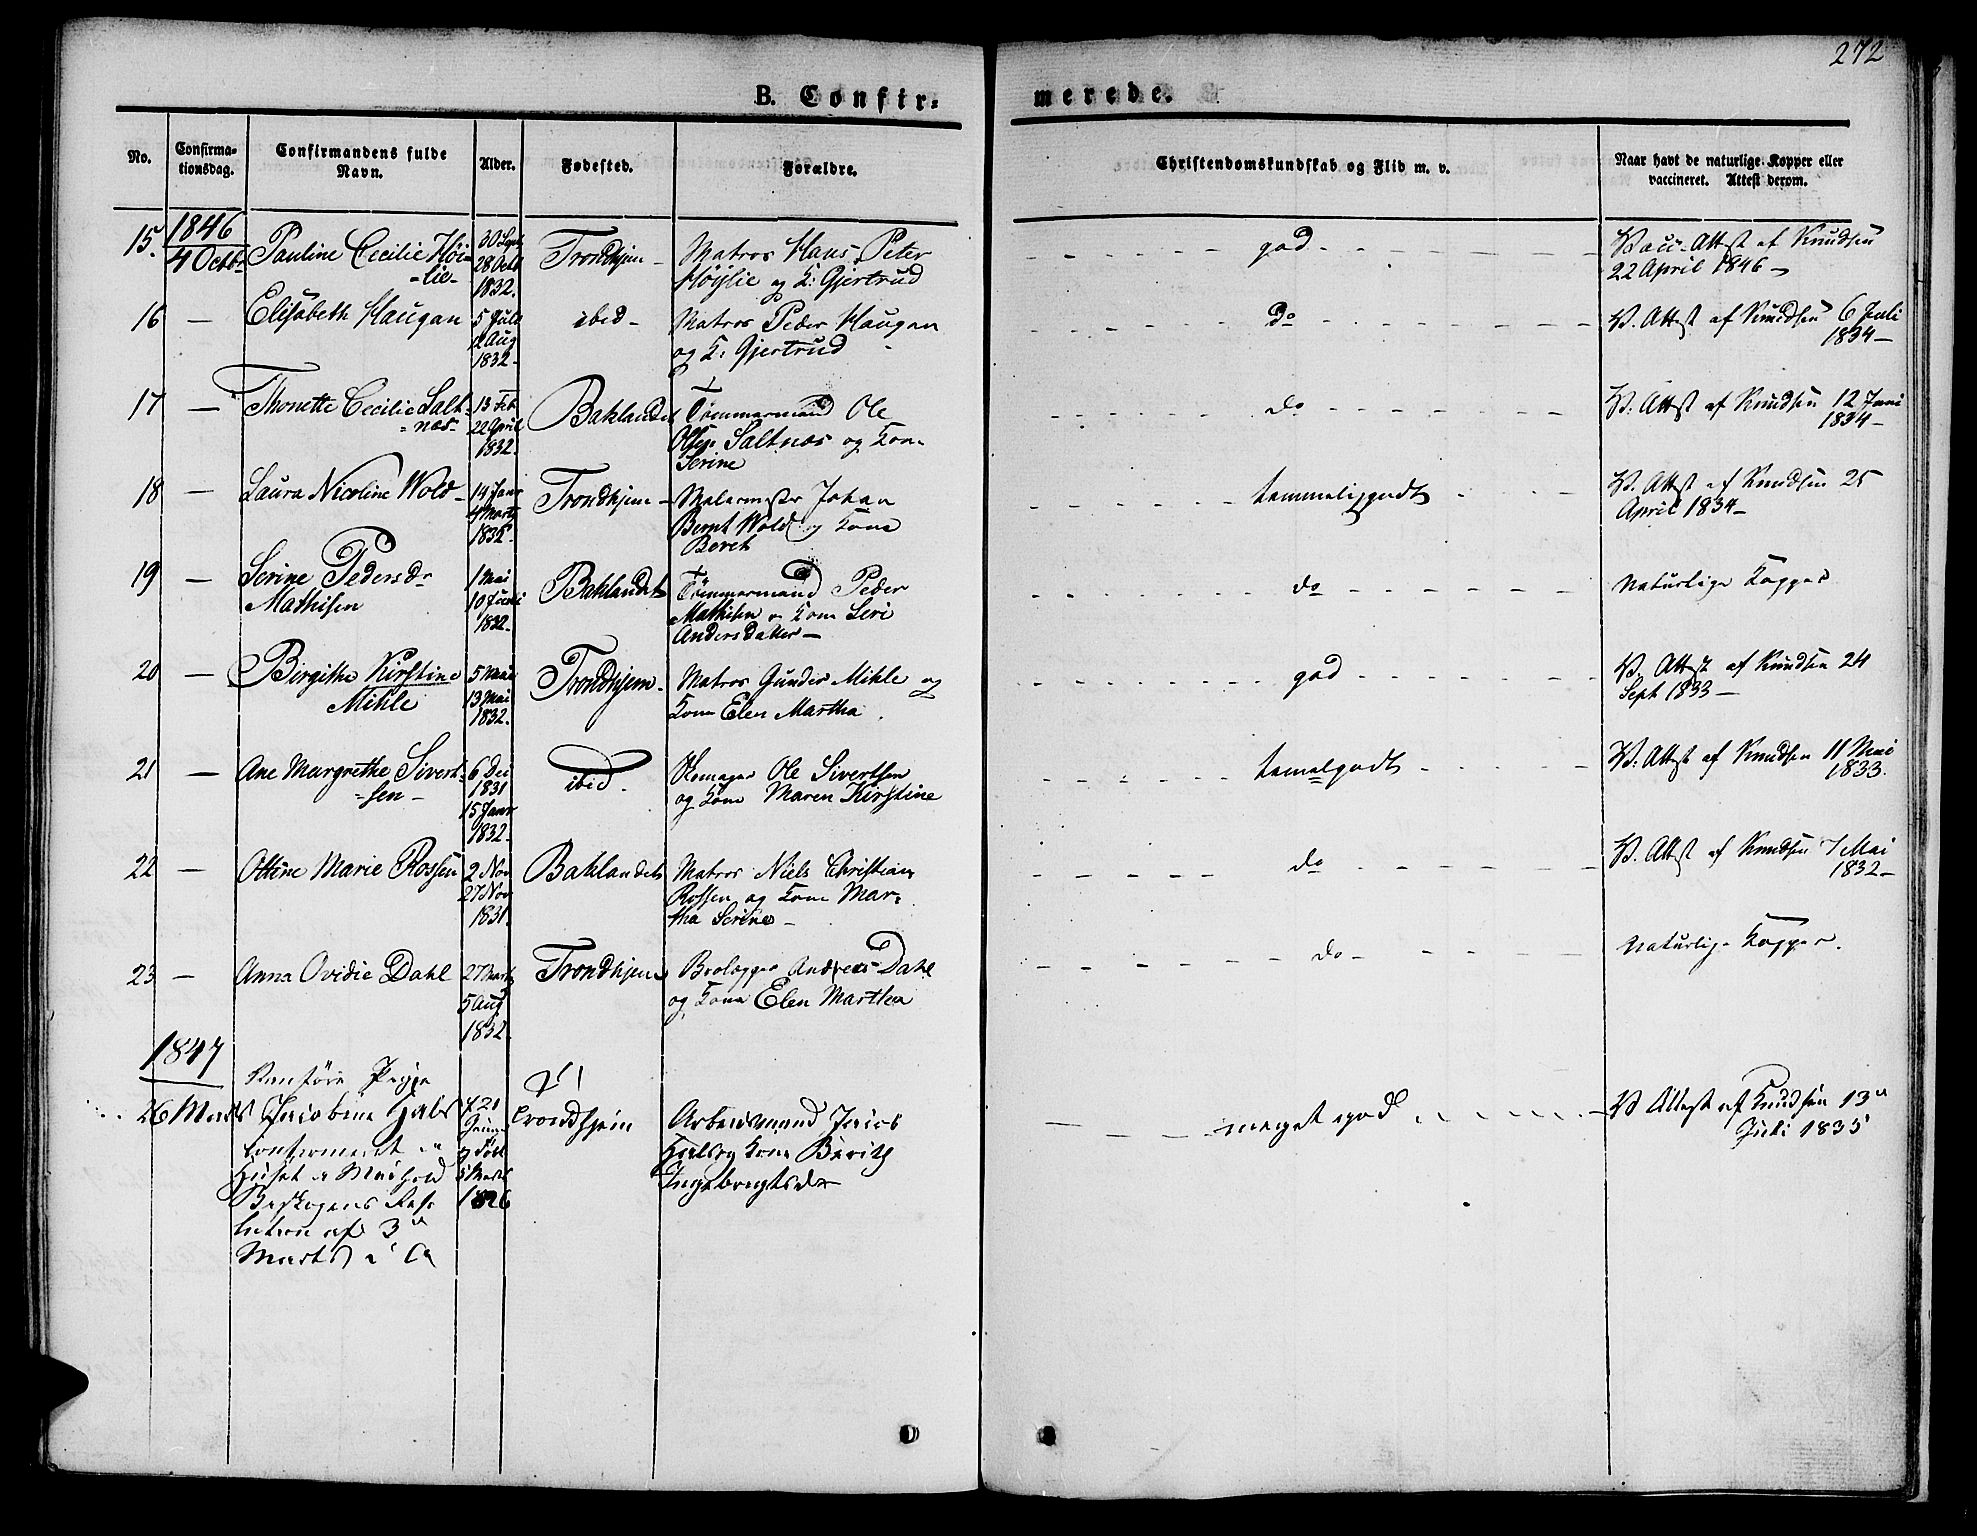 272
B. Confir-
merede.
No.
Confirma-
tionsdag.
Confirmandens fulde
Navn.
Alder.
Fødested.
Forældre.
Christendomskundskab og Flid m. v.
Naar havt de naturlige Kopper eller
vaccineret. Attest derom.
1846
15. 4 Octbr Pauline Cecilie Höi-
=lie-
30 Sept
28 Octb
1832.
Trondhjem -
Matros Hans Peter
Höjlie og K: Gjertrud
god
Vacc. Attest af Knudsen
22 April 1846 -
16 — Elisabeth Haugan
5 Juli
2 Aug
1832.
ibid -
Matros Peder Haugan
og K: Gjertrud
do
V. Attest af Knudsen 6 Juli
1834 -
17 — Thonette Cecilie Salt-
=næs-
13 Feb
22 April
1832.
Baklandet
+
Tömmermand Ole
Olsen Saltnæs og Kone
Serine
do
V. Attest af Knudsen 12 Juni
1834 -
18 — Laura Nicoline Wold -
14 Janr
4 Marts
1832.
Trondhjem -
Malermester Johan
Bernt Wold og Kone
Beret
temmelig godt
V. Attest af Knudsen 25
April 1834 -
19 — Serine Pedersdr
Mathisen
1 Mai
10 Juni
1832.
Baklandet
+
Tömmermand Peder
Mathisen og Kone Seri
Andersdatter —
do
Naturlige Kopper
20 — Birgithe Kirstine
Mihle
5 Mai
13 Mai
1832.
Trondhjem -
Matros Gunder Mihle og
Kone Elen Martha
god
V. Attest af Knudsen 24
Sept 1833 —
21 — Ane Margrethe Sivert-
=sen -
6 Dec
1831
15 Janr
1832.
ibid.
Ole Sivertsen
og Kone Maren Kirstine
temelgodt
V. Attest af Knudsen 11 Mai
1833.
22 — Ottine Marie Rossen
2 Nov
27 Nov
1831.
Baklandet
Matros Niels Christian
Rossen og Kone Mar-
tha Serine -
do
V. Attest af Knudsen 7 Mai
1832 -
23 — Anna Ovidie Dahl
27 Marts
5 Aug
1832.
Trondhjem
Brolægger Andreas Dahl
og Kone Elen Martha
do
Naturlige Kopper.
1847
Pige
26 Marts Jacobine
confirmeret
Huset
af 3
Marts
21
5 Marts
1826
Trondhjem
Arbeidsmand
og Kone Berith
Ingebrigtsdr
meget god
V Attest af Knudsen 13
Juli 1835